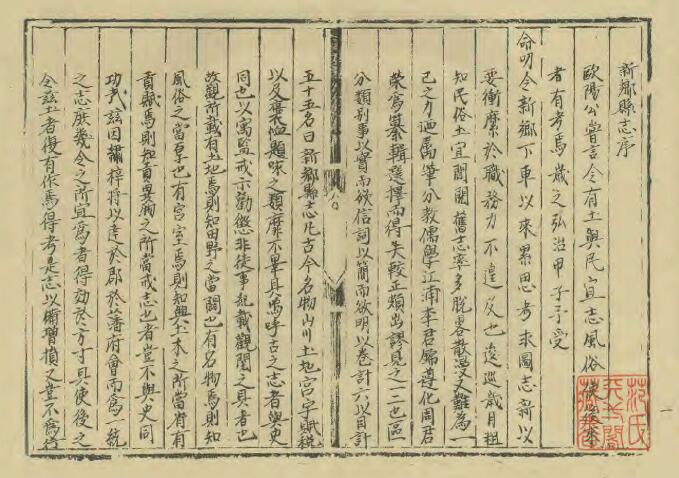 新鄉縣志序
歐陽公嘗言令有土與民宜志風俗
者有考焉歲之弘治甲子予受
命明令新鄉下車以來累思考求圖志新以
要衝縻於職務力不遑及也逡巡歲月粗
知民俗土宜間閱舊志率多脫畧散漫又難為一
己之力廼屬筆分教儒學江浦李君編遵化周君
榮寫纂輯選擇而得失較正類出謬見之一二也區
分類別事以實而欲信詞以簡而欲明以卷計六以目計
五十五名曰新鄉縣志凡古今名物山川土地宮室賦稅
以及題咏之類靡不畢具嗚呼古之志者與史
同也以寓監戒示勸懲非徒事紀載觀聞之具者也
故觀所載有土地焉則知田野之當闢也有名物焉則知
風俗之當厚也有宮室焉則知興土木之所當有
貢賦焉則知之所當戒志也者豈不與史同
功哉茲因繡梓將以達於郡於藩府會而為一統
之志庶幾令之所宜為者得効於方寸具使後之
令茲土者復有作焉得考是志以術增損又豈不為